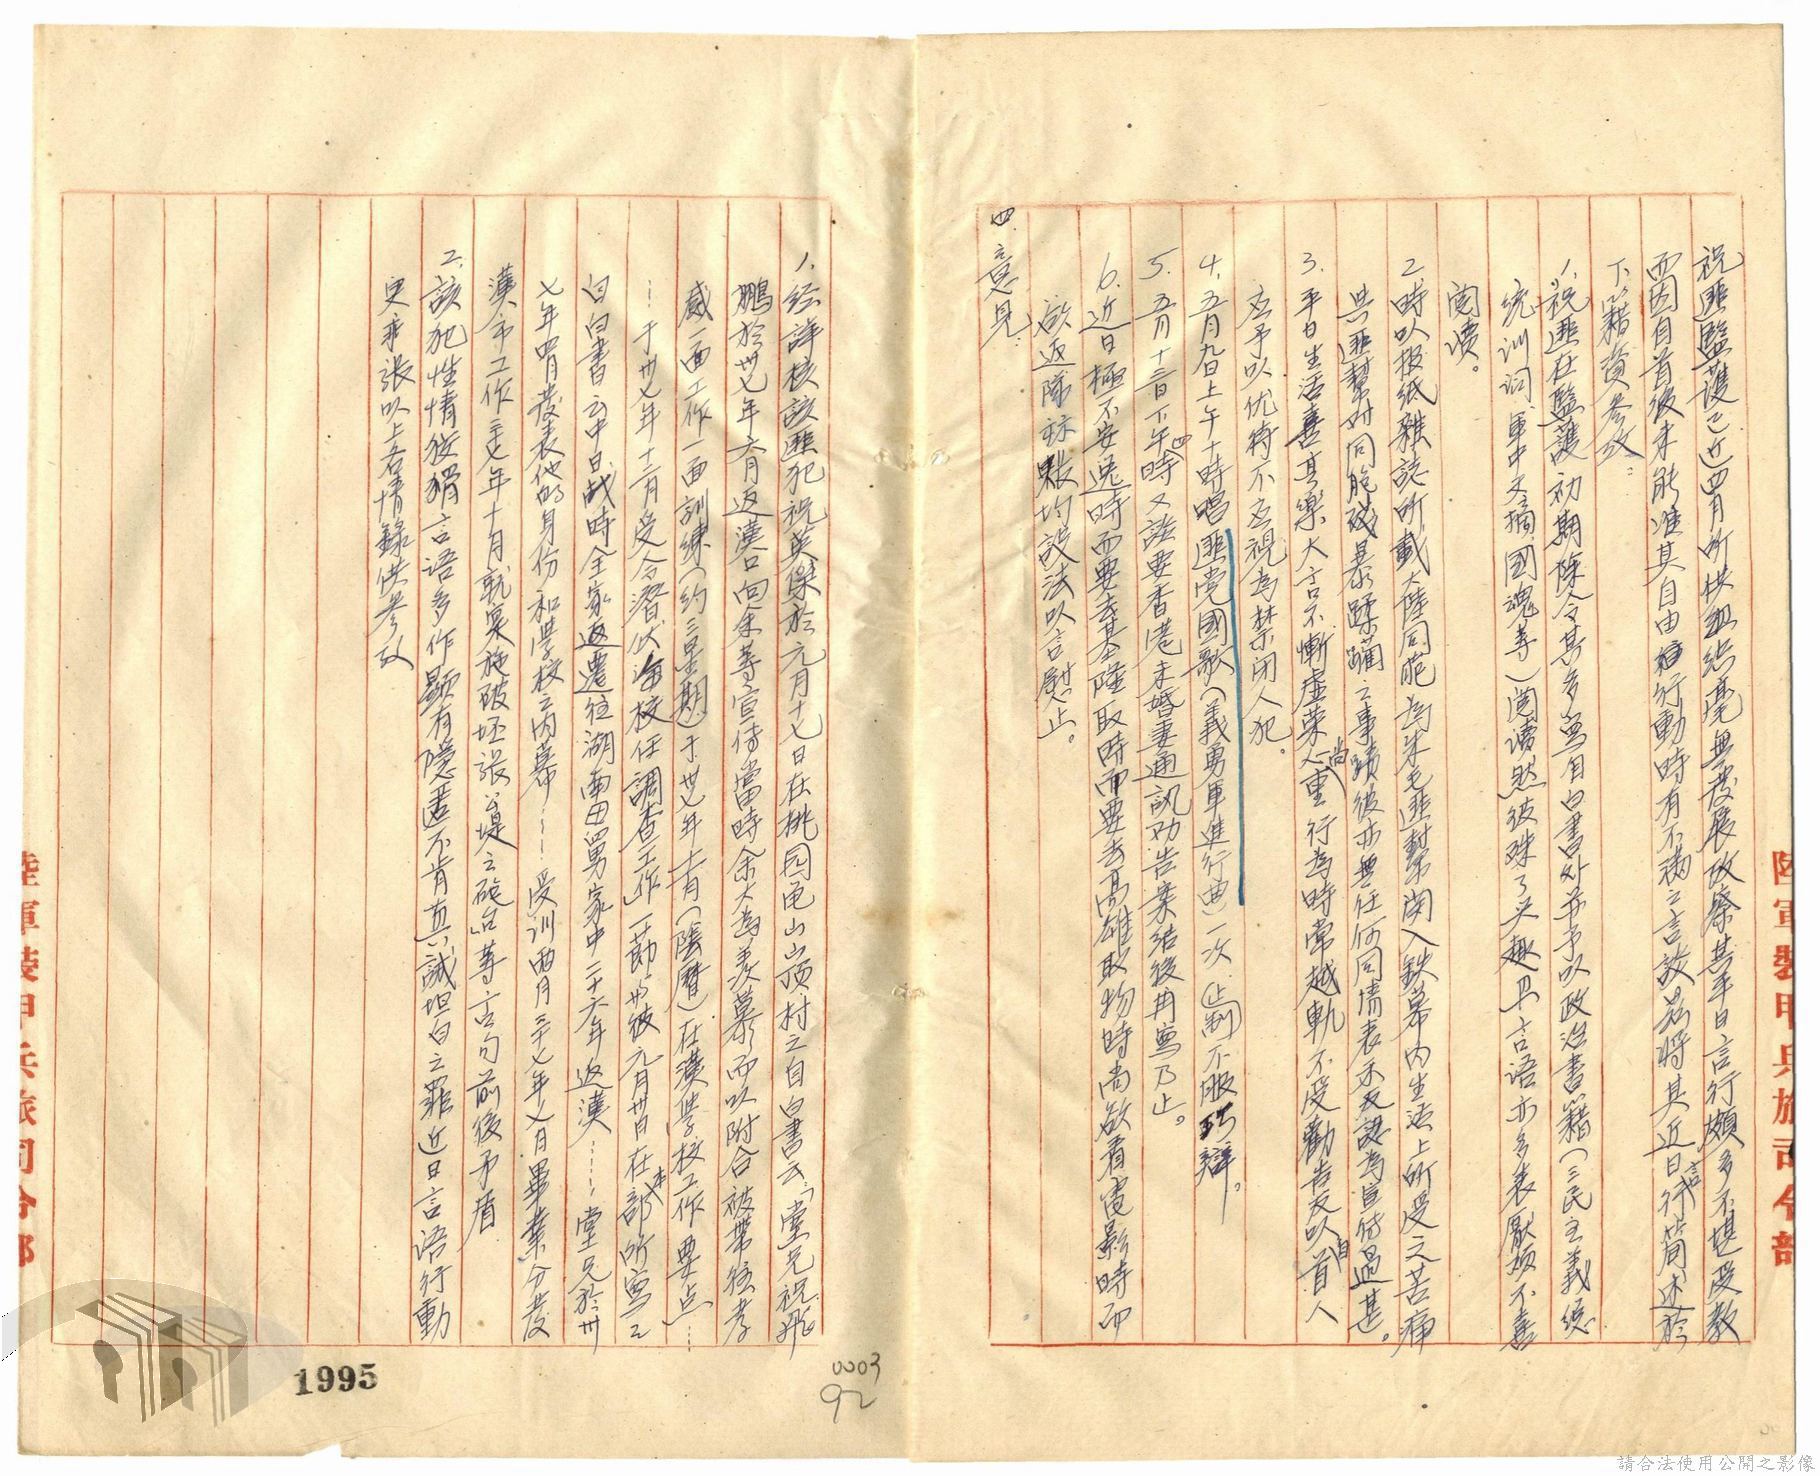 祝匪監護已近四月所供組織毫無發展故察其平日言行頗多不堪受教
因自首後未能准其自由行動時有不滿之言談茲將其近日言行簡述於
下藉資參攷：
1.祝匪在監護初期除令其多寫自白書外並予以政治書籍（三民主義總
統訓詞軍中文摘國魂等）閱讀然彼殊了乏趣且言語亦多表厭煩不喜
閱讀。
2.時以报紙雜誌所載大陸同胞為朱毛匪幫関入鉄幕內生活上所受之苦痛
共匪幫对同胞殘暴蹂躏之事蹟彼亦無任何同情表示反認為宣傳過甚。
3.平日生活喜享樂大言不慚虛荣心尚重行為時常越軌不受勸告反以自首人
应予以优待不应視為禁闭人犯。
4.五月九日上午十時唱匪党國歌（義勇軍進行曲）一次（止制）不服巧辯。
5.五月十三日下午四時又談要香港未婚妻通訊劝告案结後再寫乃止。
6.近日極不安逸時而要去基隆取時而要去高雄取物時尚欲看電影時而
欲返隊
均設法以言慰止。
四.意見：
1.经詳核該匪犯祝英傑於元月十七日在桃园龟山山顶村之自白書云「堂兄祝飛
鵬於卅七年六月返漢口向余等宣传當時余大為羡慕而以附合被帶往孝
感一面工作一面訓練（约三星期）于卅七年十一月（陰曆）在漢學校工作要点…
…于卅七年十二月受令潛伏海校任調查工作」一節与彼元月卅日在本部所寫之
自白書云中日战時全家返遷往湖南田舅家中二十六年返漢……堂兄於卅
七年四月發表他的身份和學校之内幕……受训两月三十七年七月畢業分發
漢市工作三七年十月就實施破坯張公堤之砲台」等言句前後矛盾
2.該犯性情狡猾言語多作顕有隱匿不肯真誠坦白之罪近日言語行動
更乖張以上各情錄供參攷
陸軍裝甲兵旅司令部
陸軍裝甲兵旅司令部
1995
0003
92
請合法使用公開之影像